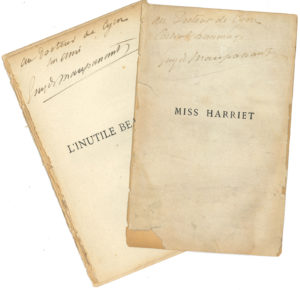 au Docteur de Cyon
son ami
Guy de Maupassant
L'INUTILE BEA
au Docteur de Cyon
Guy de Maupassant
MISS HARRIET